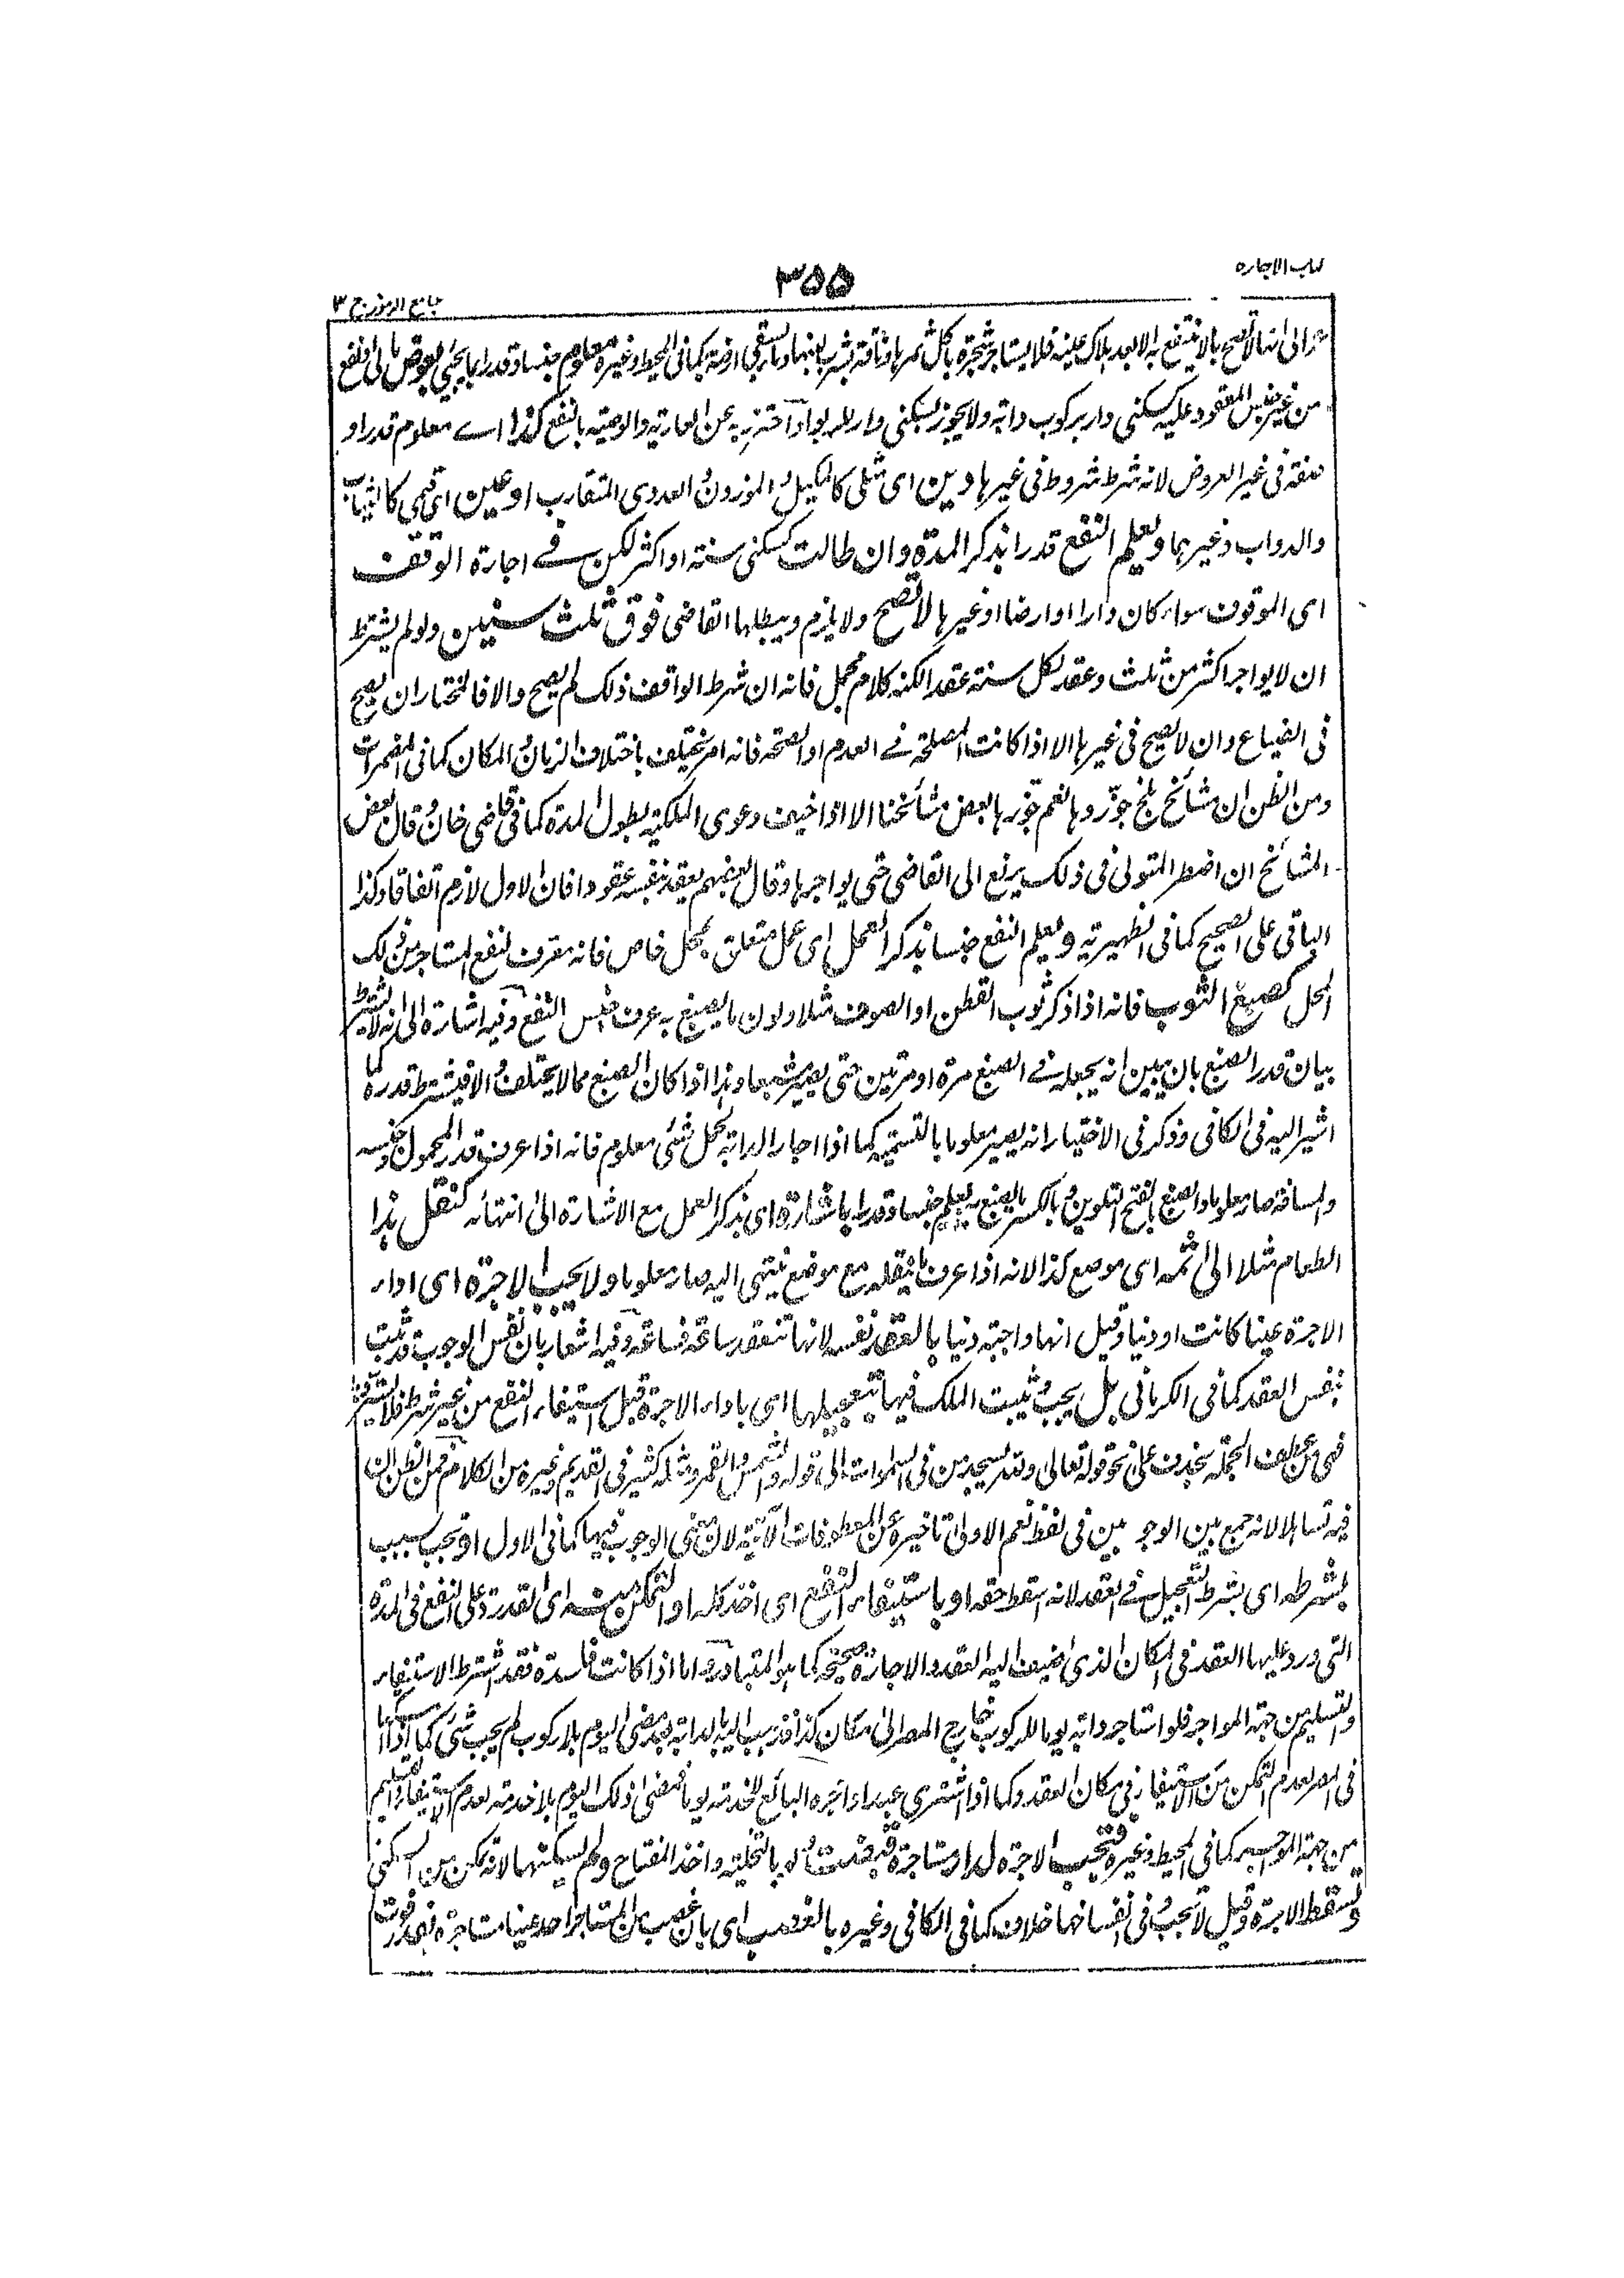 كتاب الاجاره
٣٥٥
جامع الرموز ج ٣
الى انها لا تصح بما لا ينتفع به الا بعد هلاك عينه فلا يستاجر شجرة باكل ثمرها وناقة بشرب لبنها وماء لسقى ارضه كما فى المحيط وغيره معلوم جنسا وقدرا بما يجئ بعوض مالى او نفع
من غير جنس المعقود عليه كسكنى دار بركوب دابة ولا يجوز لسكنى دار احترز به عن العارية والوصية بالنفع كذا اے معلوم قدرا و
صفة فى غير العروض لانه شرط شروط فى غيرها دين اى مثلى كالمكيل والموزون والعددى المتقارب او عين اى قيمى كالثياب
والدواب وغيرهما ويعلم النفع قدرا بذكر المدة وان طالت كسكنى سنة او اكثر لكن فے اجارة الوقف
اى الموقوف سواء كان دارا او ارضا او غيرها لا تصح ولا يلزم ويبطلها القاضى فوق ثلث سنين ولو لم يشترط
ان لا يواجر اكثر من ثلث وعقد لكل سنة عقدا لكنه كلام مجمل فانه ان شرط الواقف ذلك لم يصح والا فالمختار ان يصح
فى الضياع وان لا يصح فى غيرها الا اذا كانت المصلحة فے العدم او الصحة فانه امر يختلف باختلاف الزمان والمكان كما فى المضمرات
ومن الظن ان مشائخ بلخ جوّزوها نعم جوزها بعض مشائخنا الا اذا خيف دعوى الملكية بطول المدة كما فى قاضى خان وقال بعض
المشائخ ان اضطر المتولى فى ذلك يرفع الى القاضى حتى يواجرها وقال بعضهم يعقد بنفسه عقودا فان الاول لازم اتفاقا وكذا
الباقى على الصحيح كما فى الظهيرية ويعلم النفع جنسا بذكر العمل اى عمل متعلق بمحل خاص فانه معرف لنفع المستاجر من ذلك
المحل كصبغ الثوب فانه اذا ذكر ثوب القطن او الصوف مثلا ولون ما يصبغ به عرف جنس النفع وفيه اشارة الى انه لا يشترط
بيان قدر الصبغ بان يبين انه يجعله فے الصبغ مرة او مرتين حتى يصير مشبعا وهذا اذا كان الصبغ مما لا يختلف والا فيشترط قدره كما
اشير اليه فى الكافى وذكر فى الاختيار انه يصير معلوما بالتسمية كما اذا اجار الدابة لحمل شئ معلوم فانه اذا عرف قدر المحمول وجنسه
والمسافة صار معلوما والصبغ بالفتح التلوين وبالكسر ما يصبغ به ويعلم جنسا وقدرا باشارة اى بذكر العمل مع الاشارة الى انتهائه كنقل هذا
الطعام مثلا الى ثمه اى موضع كذا لانه اذا عرف ما ينقله مع موضع ينتهى اليه صار معلوما ولا يجب الاجرة اى اداء
الاجرة عينا كانت او دينا وقيل انها واجبة دينا بالعقد نفسه لانها تنعقد ساعة فساعة وفيه اشعار بان نفس الوجوب قد ثبت
بنفس العقد كما فى الكرمانى بل يجب ويثبت الملك فيها بتعجيلها اى باداء الاجرة قبل استيفاء النفع من غير شرط فلا يسترد
فهى من عطف الجملة بحذف على نحو قوله تعالى ولله يسجد من فى السموات الى قوله والشمس والقمر ومثله كثير فى القديم وغيره من الكلام فمن الظن ان
فيه تساهلا لانه جمع بين الوجوبين فى لفظ نعم الاولى تاخيره عن المعطوفات الآتية لان معنى الوجوب فيها كما فى الاول او تجب بسبب
بشرطه اى بشرط التعجيل فے العقد لانه اسقط حقه او باستيفاء النفع اى اخذ كله او التمكن منه اى القدرة على النفع فى المدة
التى ورد عليها العقد فى المكان الذى اضيف اليه العقد والاجارة صحيحة كما هو المتبادر واما اذا كانت فاسدة فقد اشترط الاستيفاء
والتسليم من جهة المواجر فلو استاجر دابة يوما للركوب خارج المصر الى مكان كذا فذهب اليه بالدابة بعد مضى اليوم بلا ركوب لم يجب شئ كما اذا
فى المصر لعدم التمكن من الاستيفاء فى مكان العقد وكما اذا اشترى عبدا واجره البائع لخدمته يوما فمضى ذلك اليوم بلا خدمته لعدم الاستيفاء والتسليم
من جهة المواجر كما فى المحيط وغيره فتجب الاجرة لدار مستاجرة قبضت له بالتخلية واخذ المفتاح ولم يسكنها لانه تمكن من السكنى
وتسقط الاجرة وقيل لا تجب وفى انفساخها خلاف كما فى الكافى وغيره بالغصب اى بان غصب من المستاجر احد عينا مستاجرة بقدر فوت